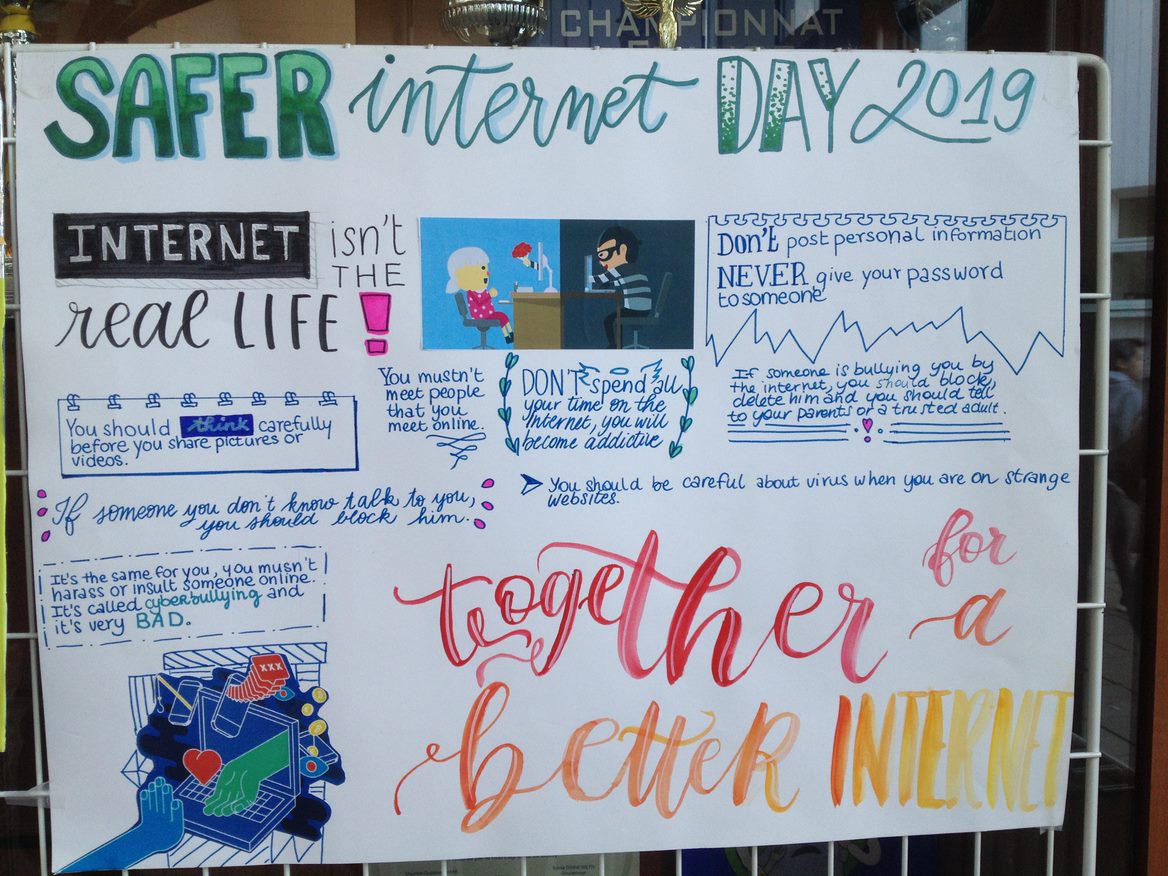 CHAMPIONNAT
SAFER internet DAY 2019
INTERNET isn't
THE
real LIFE!
Don't post personal information
NEVER give your password
to someone
You mustn't
meet people
that you
meet online.
DON'T spend all
your time on the
Internet, you will
become addictive
If someone is bullying you by
the internet, you should block,
delete him and you should tell
to your parents or a trusted adult.
You should think carefully
before you share pictures or
videos.
If someone you don't know talk to you,
you should block him.
You should be careful about virus when you are on strange
websites.
It's the same for you, you musn't
harass or insult someone online.
It's called cyberbullying and
it's very BAD.
XXX
together for
a
better INTERNET